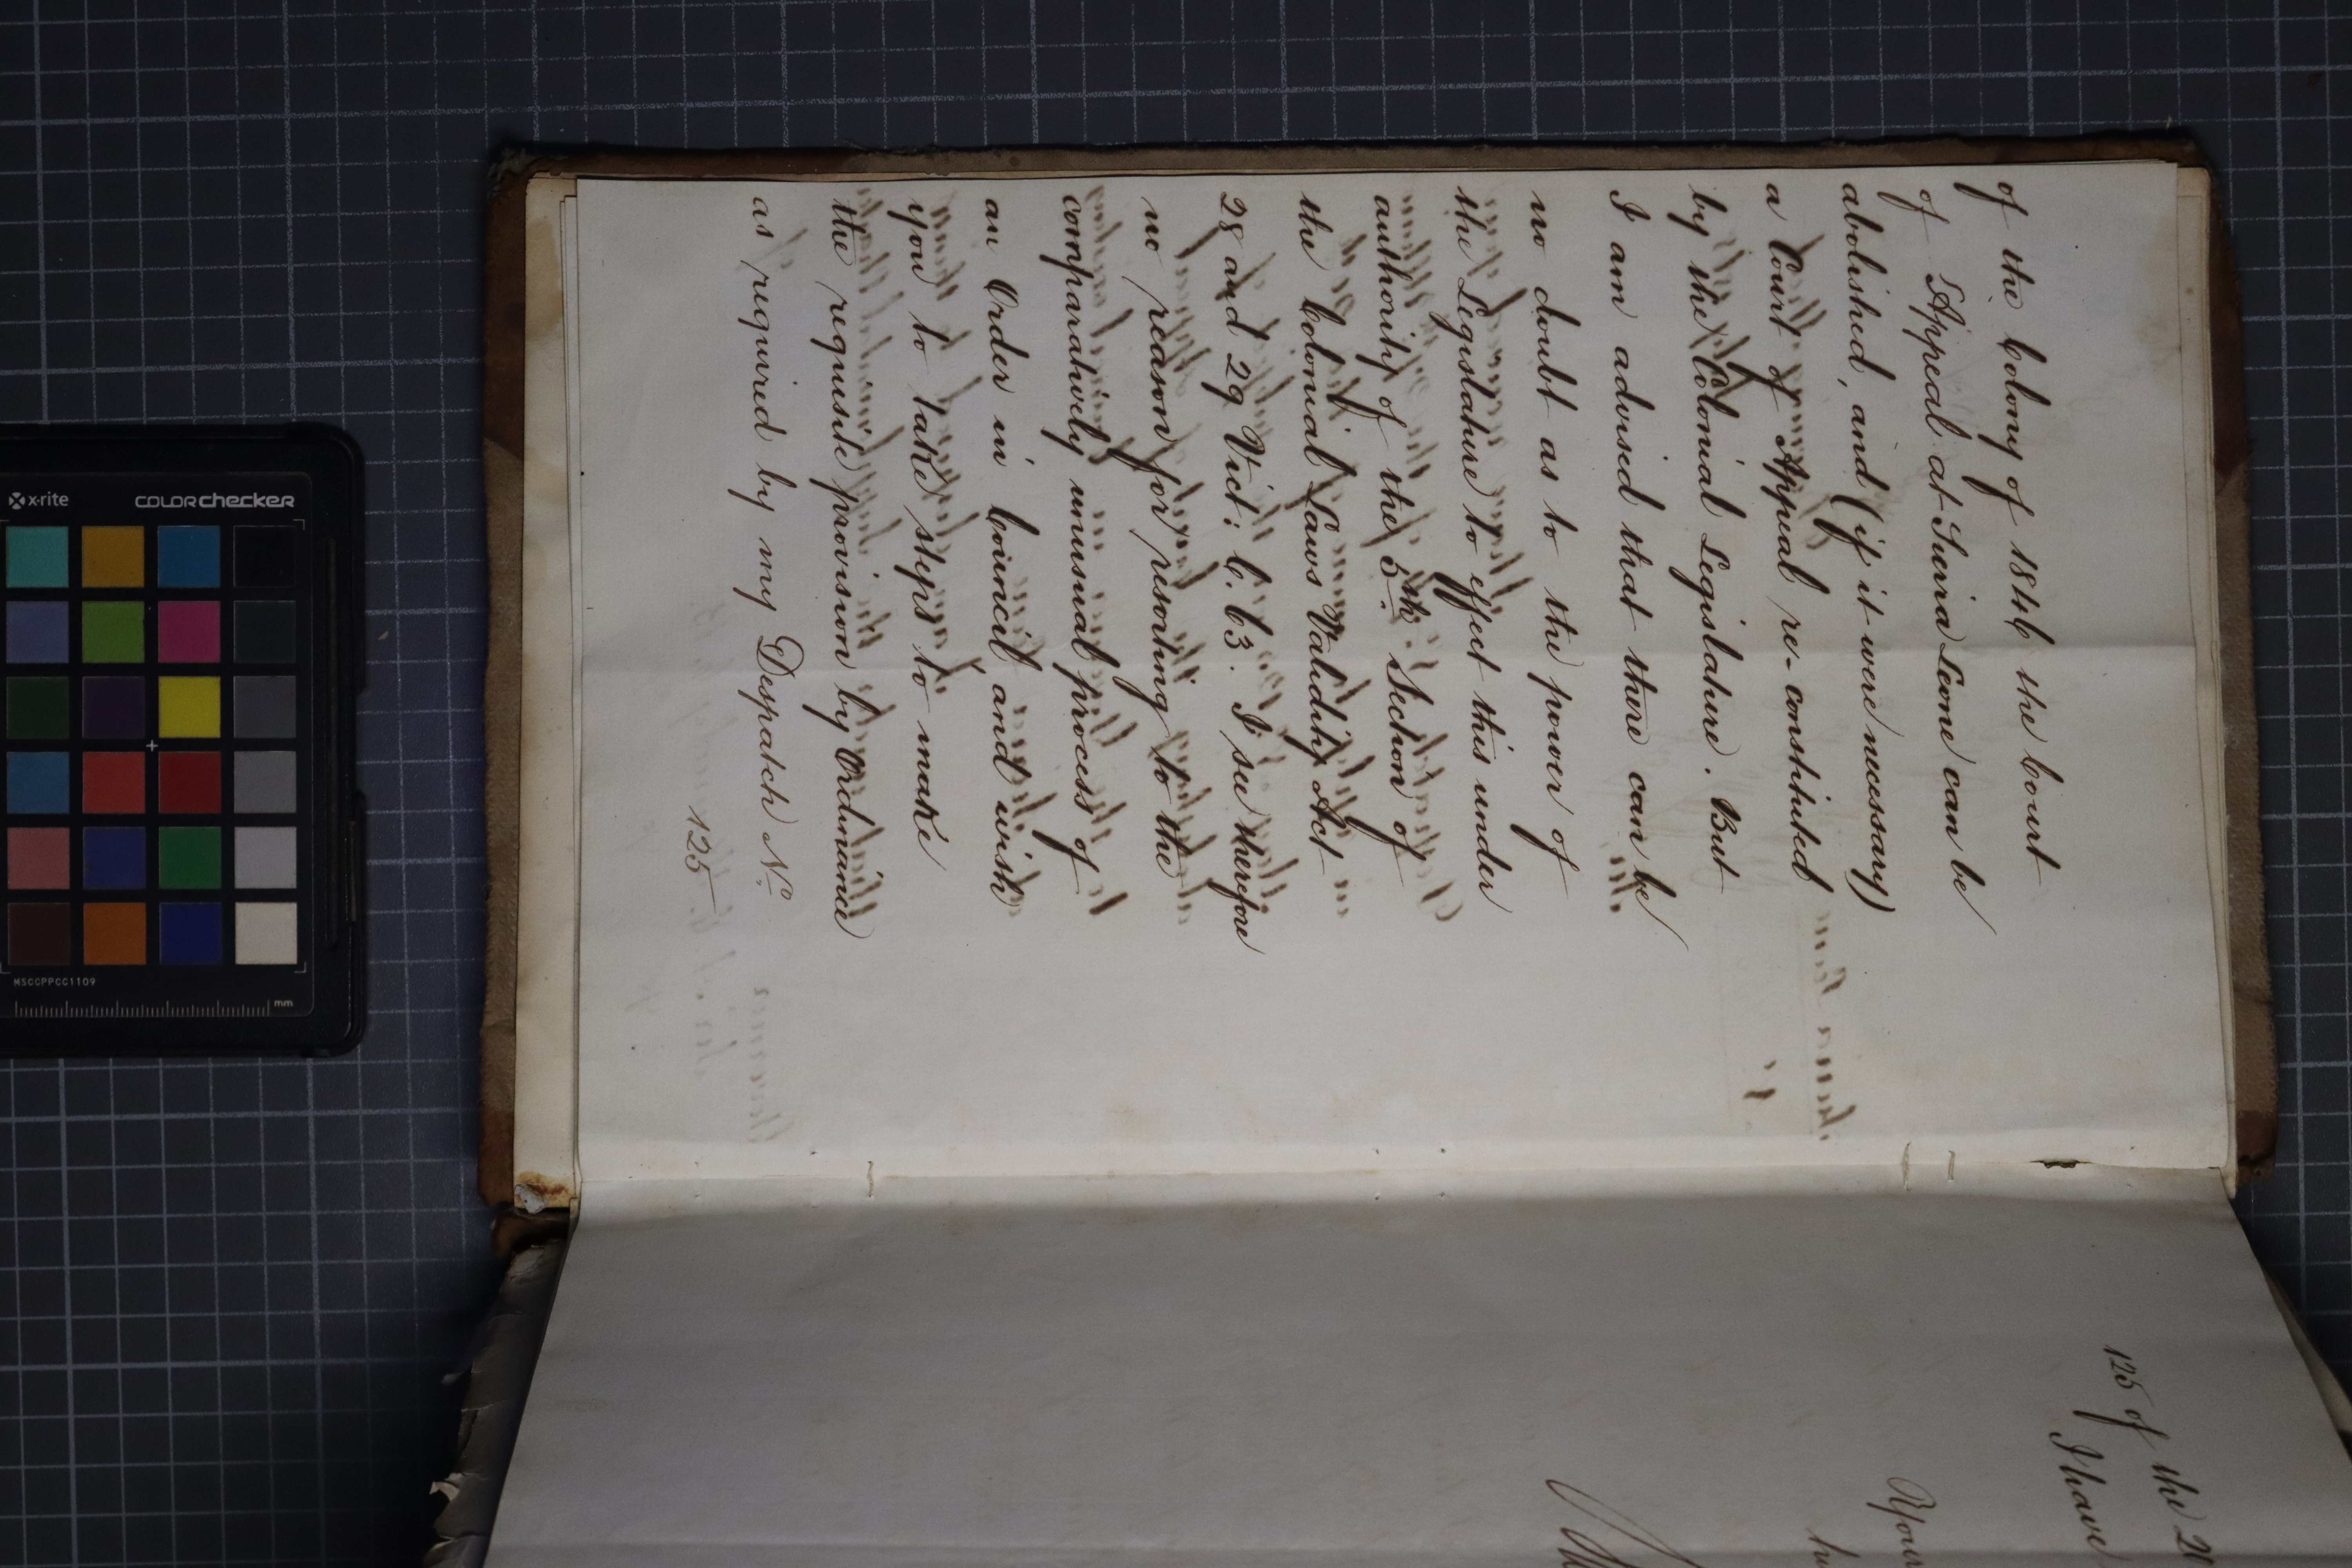 of the Colony of 1846 the Court
of Appeal at Sierra Leone can be
abolished, and (if it were necessary)
a Court of Appeal re-constituted
by the Colonial Legislature. But
I am advised that there can be
no doubt as to the power of
the Legislature to effect this under
authority of the 5th Section of
the Colonial Laws Validity Act
28 and 29 Vict: C. 63. I see therefore
no reason for resorting to the
comparatively unusual process of
an Order in Council and wish
you to take steps to make
the requisite provision by Ordinance
as required by my Despatch No.
125
125 of the 2
I have
Your
x-rite
colorchecker
MSCCPPCC1109
mm